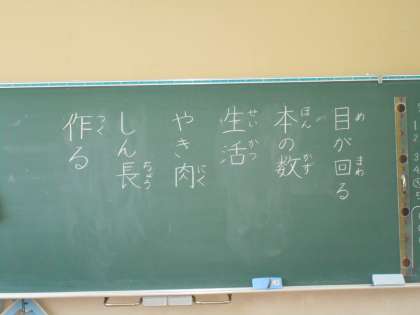 目が回る
め
まわ
本の数
ほん
かず
生活
せいかつ
やき肉
にく
しん長
ちょう
作る
つく